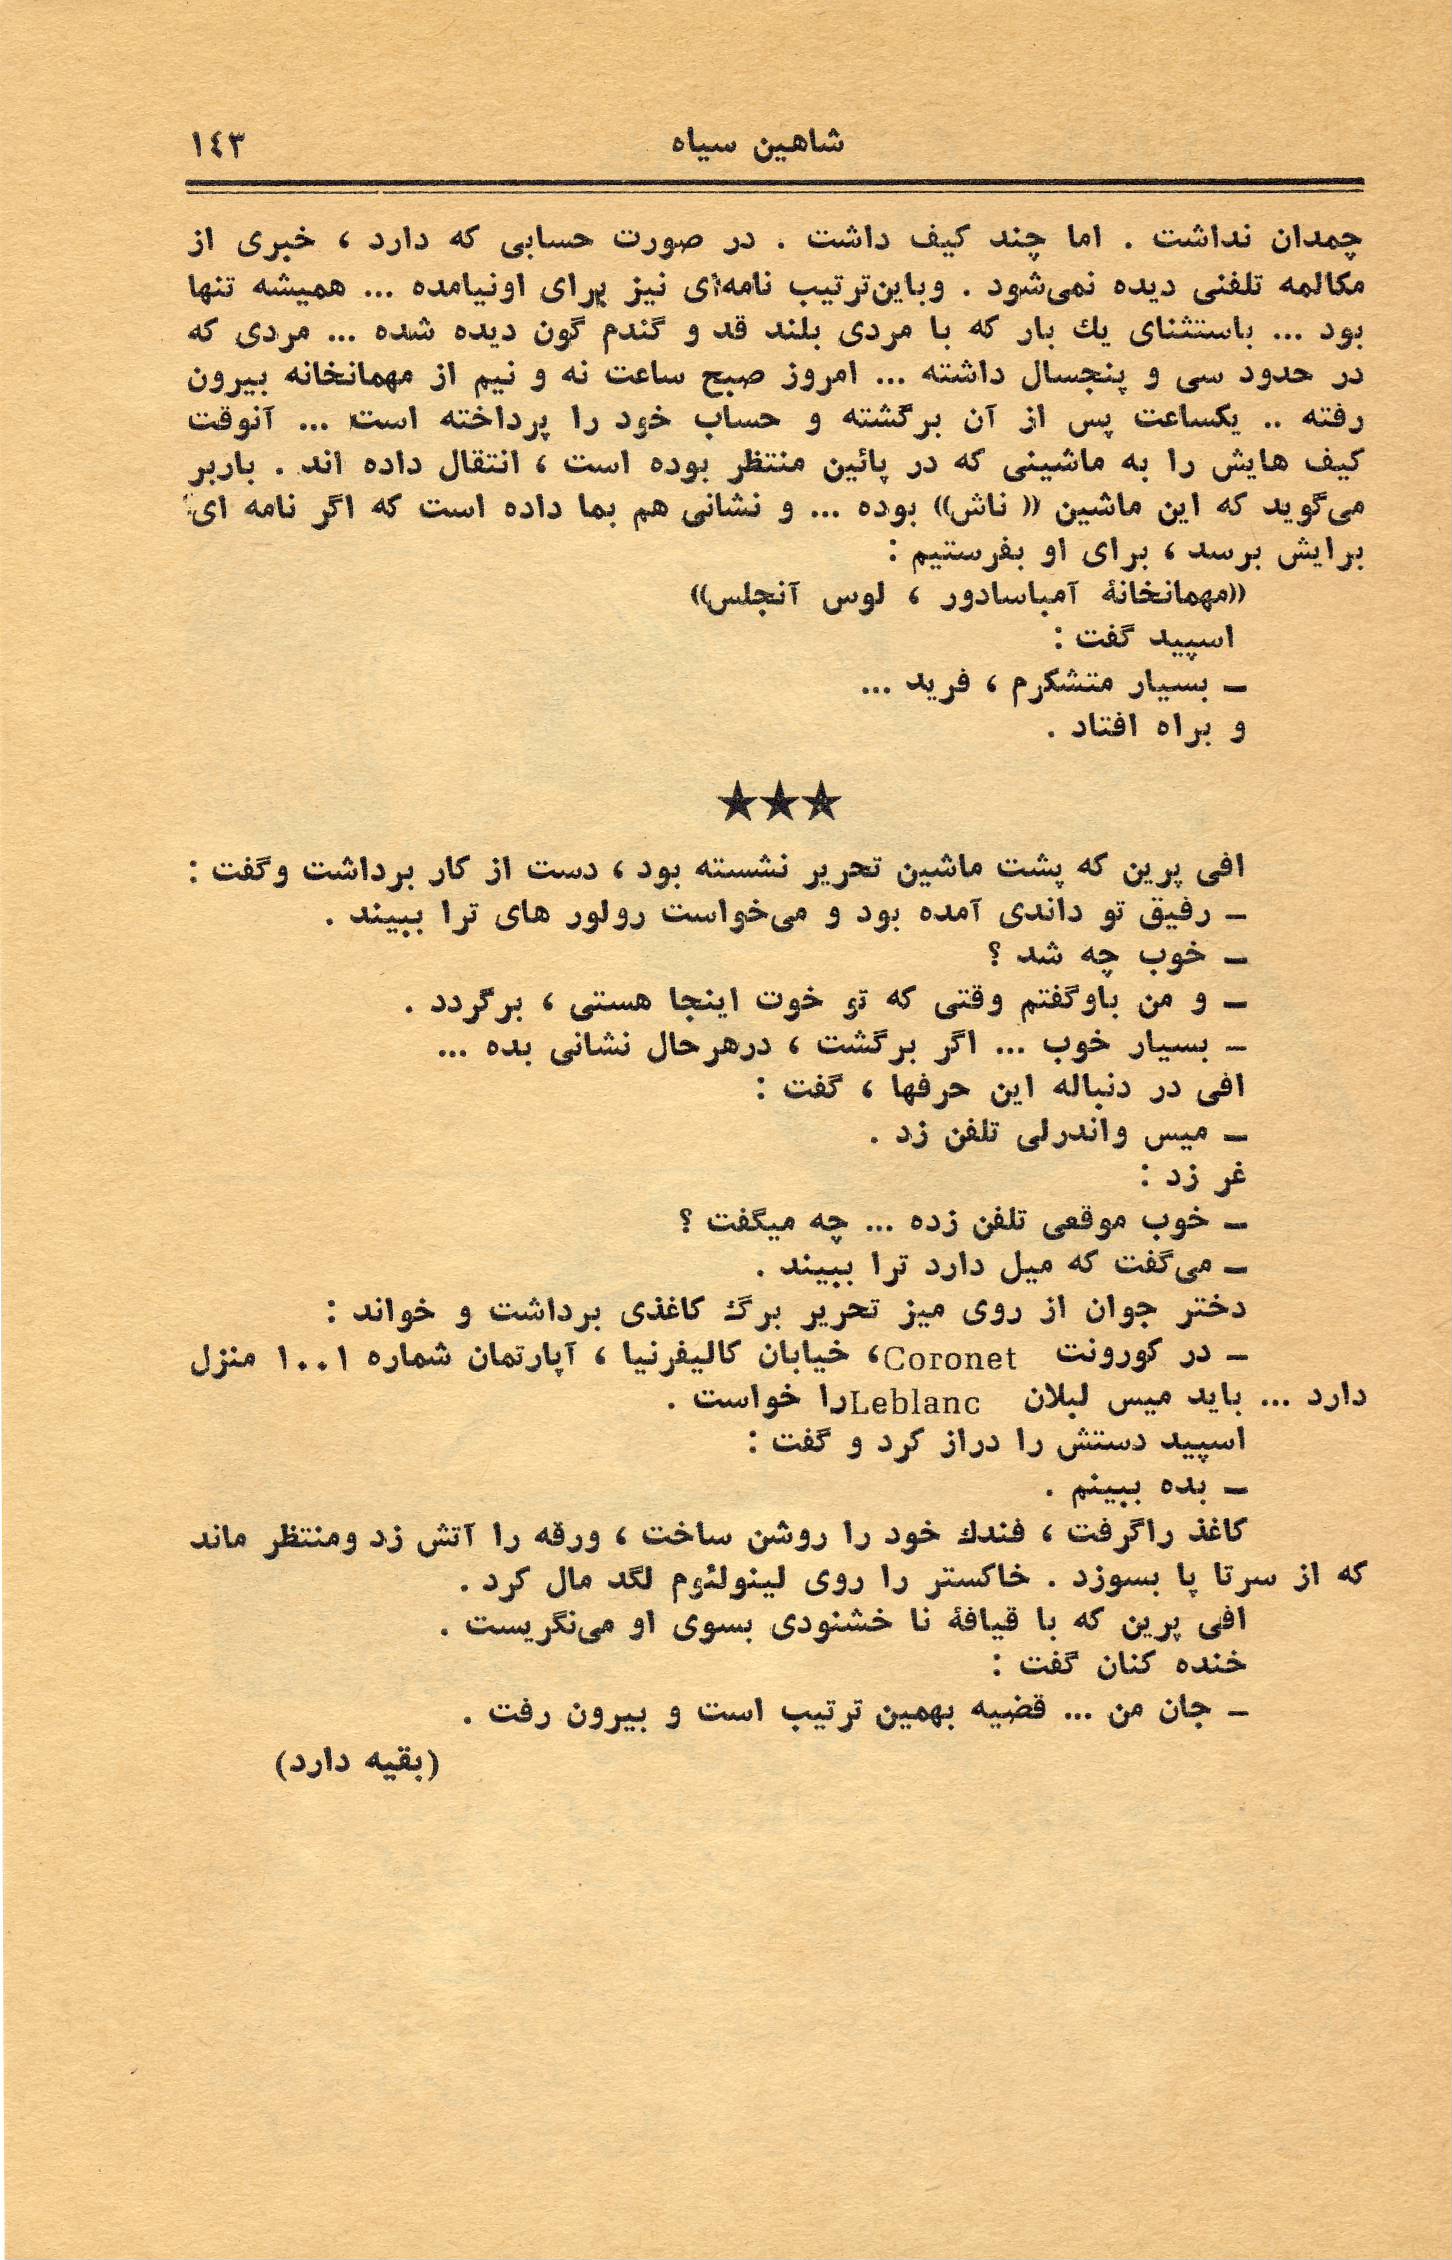 شاهین سیاه
۱٤۳
چمدان نداشت . اما چند کیف داشت . در صورت حسابی که دارد ، خبری از
مکالمه تلفنی دیده نمی‌شود . وباین‌ترتیب نامه‌ای نیز برای اونیامده ... همیشه تنها
بود ... باستثنای يك بار که با مردی بلند قد و گندم گون دیده شده ... مردی که
در حدود سی و پنجسال داشته ... امروز صبح ساعت نه و نیم از مهمانخانه بیرون
رفته .. یکساعت پس از آن برگشته و حساب خود را پرداخته است ... آنوقت
کیف هایش را به ماشینی که در پائین منتظر بوده است ، انتقال داده اند . باربر
می‌گوید که این ماشین (( ناش)) بوده ... و نشانی هم بما داده است که اگر نامه ای
برایش برسد ، برای او بفرستیم :
((مهمانخانهٔ آمباسادور ، لوس آنجلس))
اسپید گفت :
ـ بسیار متشکرم ، فرید ...
و براه افتاد .
★★★
افی پرین که پشت ماشین تحریر نشسته بود ، دست از کار برداشت وگفت :
ـ رفیق تو داندی آمده بود و می‌خواست رولور های ترا ببیند .
ـ خوب چه شد ؟
ـ و من باوگفتم وقتی که تو خوت اینجا هستی ، برگردد .
ـ بسیار خوب ... اگر برگشت ، درهرحال نشانی بده ...
افی در دنباله این حرفها ، گفت :
ـ میس واندرلی تلفن زد .
غر زد :
ـ خوب موقعی تلفن زده ... چه میگفت ؟
ـ می‌گفت که میل دارد ترا ببیند .
دختر جوان از روی میز تحریر برگ کاغذی برداشت و خواند :
ـ در کورونت Coronet، خیابان کالیفرنیا ، آپارتمان شماره ۱۰۰۱ منزل
دارد ... باید میس لبلان Leblanc را خواست .
اسپید دستش را دراز کرد و گفت :
ـ بده ببینم .
کاغذ راگرفت ، فندك خود را روشن ساخت ، ورقه را آتش زد ومنتظر ماند
که از سرتا پا بسوزد . خاکستر را روی لینولئوم لگد مال کرد .
افی پرین که با قیافهٔ نا خشنودی بسوی او می‌نگریست .
خنده کنان گفت :
ـ جان من ... قضیه بهمین ترتیب است و بیرون رفت .
(بقیه دارد)